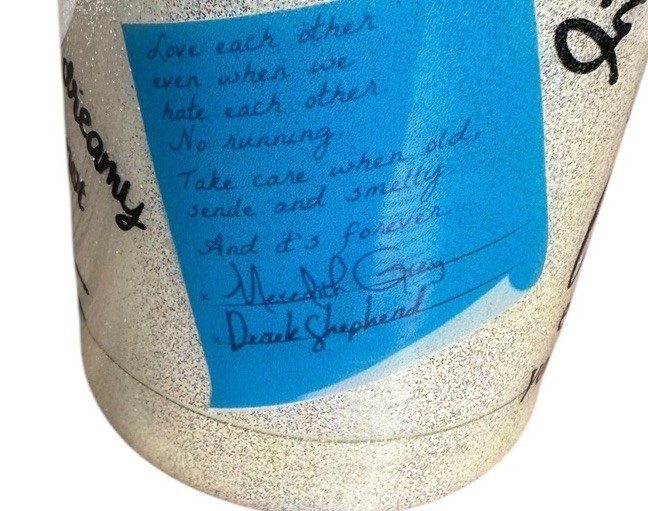 Love each other
even when we
hate each other.
No running.
Take care when old,
senile and smelly
And it's forever.
x Meredith Grey
x Derek Shepherd
dreamy